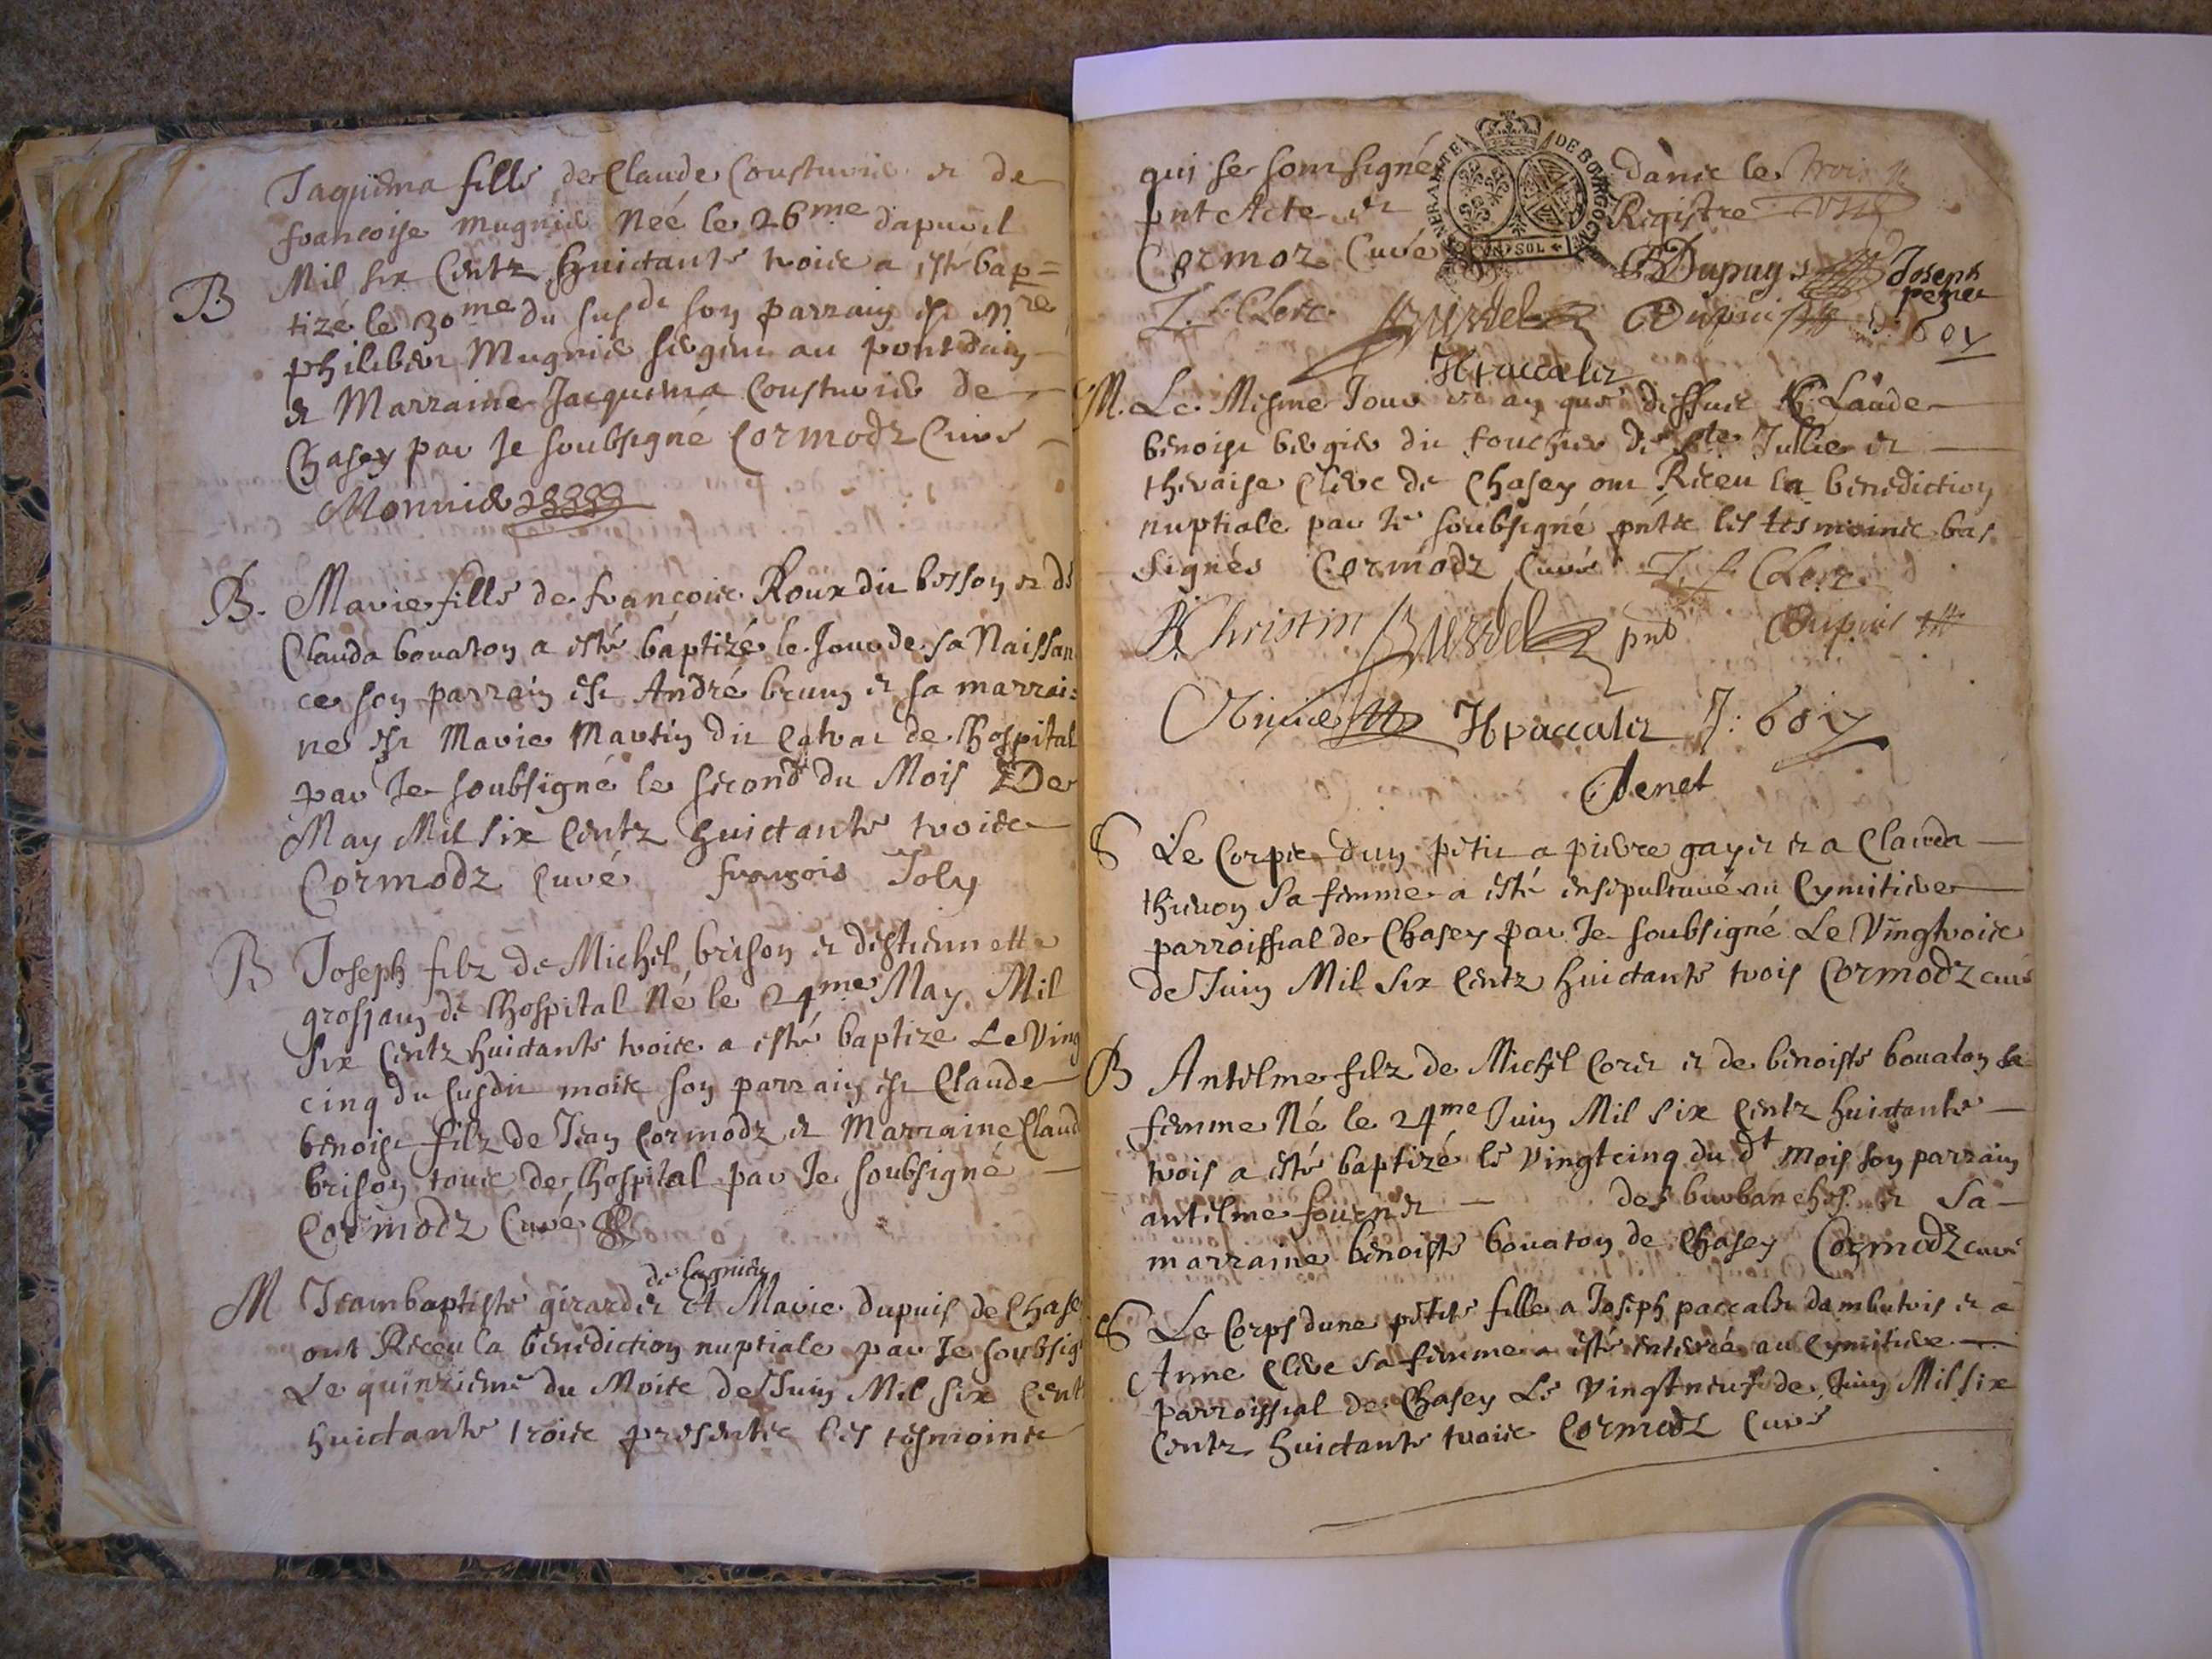 Jaquema fille de Claude Cousturier et de
francoise mugnier Neé le 26me dapvril
B Mil six Centz huictante troise a esté bap=
tizé le 30me du susdt son parrain est Mre
philibert Mugnier sergent au pont dain
et Marraine Jacquema Cousturier de
Chasey par Je soubsigné Cormodz Curé
Monnier
B. Marie fille de francoise Roux dit besson et de
Clauda bouaton a esté baptizé le Jour de sa Naissan
ce son parrain est André brun et sa marrai=
ne est Marie Martin dit de lhospital
par Je soubsigné le second du Mois De
May Mil six Centz huictante troise
Cormodz Curé françois Joly
B Joseph filz de Michel brison et destiennette
grosjean de lhospital Né le 24me May Mil
six Centz huictante troise a esté baptize Le Ving
cinq du susdit moise son parrain est Claude
benoist filz de Jean Cormodz et Marraine Claud
brison touse de lhospital par Je soubsigné
Cormodz Curé
de lagnieu
M Jeambaptiste girardet Et Marie dupuis de Chase
ont Receu la benediction nuptiale par Je soubsig
Le quinzieme du Moise de Juin Mil six Cent
huictante troise presentse les tesmoinse
qui se sont signé danse le
pnt Acte et Registre
Cormoz Curé Dupuy Joseph
perret
J. f. Clerc Burdel Dupuis J: boy
H paccalet
M. Le Mesme Jour et an que dessuse Claude
benoist bergier dit fouchier de Ste Jullie et
thevaise Clerc de Chasey ont Receu la benediction
nuptiale par Je soubsigné pntse les tesmoinse bas
signés Cormodz Curé J. f. Clerc
B. Christin Burdel pnt Dupuis
H paccalet J: boy
Jenet
S Le Corpse dun petit a pierre gayet et a Clauda
thevon Sa femme a esté ensepulturé au Cymitiere
parroissial de Chasey par Je soubsigné Le Vingtroise
de Juin Mil Six Centz huictante trois Cormodz curé
B Antelme filz de Michel Coret et de benoiste bouaton sa
femme Né le 24me Juin Mil Six Centz huictante
trois a esté baptizé le vingtcinq du dt mois son parrain
antelme fournet des burbanches et Sa
marraine benoiste bouaton de Chasey Cormodz curé
S Le Corps dune petite fille a Joseph paccalet dambutris et a
Anne Clerc sa femme a esté enterré au Cymitiere
parroissial de Chasey Le Vingtneuf de Juin Mil six
Centz huictante troise Cormodz Curé